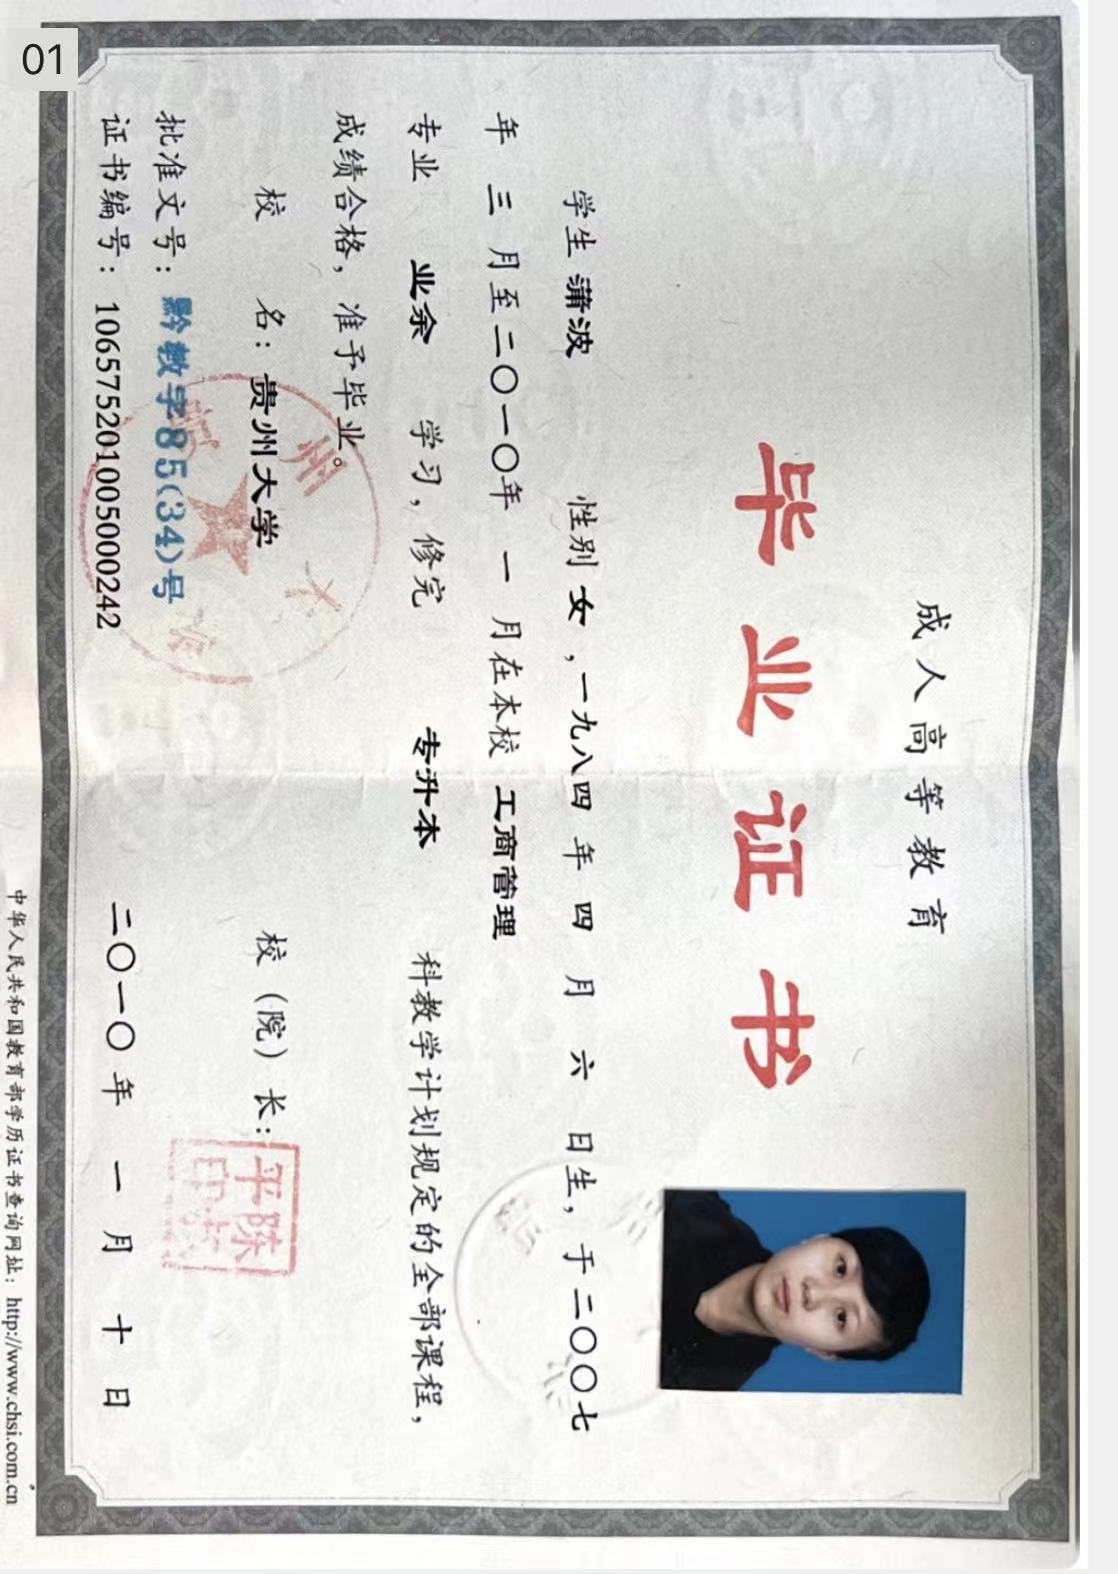 01
成人高等教育
毕业证书
学生 蒲波 性别 女，一九八四 年 四 月 六 日生，于二〇〇七
年 三 月至二〇一〇年 一 月在本校 工商管理
专业 业余 学习，修完 专升本 科教学计划规定的全部课程，
成绩合格，准予毕业。
校 名：贵州大学 校（院）长：
平陈
批准文号：黔教字85(34)号
证书编号：106575201005000242 二〇一〇年 一 月 十 日
中华人民共和国教育部学历证书查询网址：http://www.chsi.com.cn